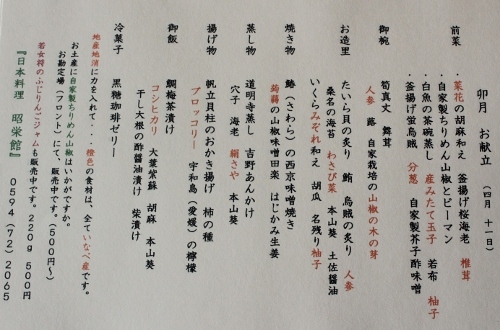 卯月 お献立 (四月 十一日)
前菜
・菜花の胡麻和え 釜揚げ桜海老 椎茸
・自家製ちりめん山椒とピーマン
・白魚の茶碗蒸し 産みたて玉子 若布 柚子
・釜揚げ蛍烏賊 分葱 自家製芥子酢味噌
御椀
筍真丈 舞茸
人参 蕗 自家栽培の山椒の木の芽
お造里
たいら貝の炙り 鮪 烏賊の炙り 人参
桑名の海苔 わさび菜 本山葵 土佐醤油
いくらみぞれ和え 胡瓜 名残り柚子
焼き物
鰆(さわら)の西京味噌焼き
蒟蒻の山椒味噌田楽 はじかみ生姜
蒸し物
道明寺蒸し 吉野あんかけ
穴子 海老 絹さや 本山葵
揚げ物
帆立貝柱のおかき揚げ 柿の種
ブロッコリー 宇和島(愛媛)の檸檬
御飯
鯛梅茶漬け
コシヒカリ 大葉紫蘇 胡麻 本山葵
干し大根の酢醤油漬け 柴漬け
冷菓子
黒糖珈琲ゼリー
地産地消に力を入れて・・橙色の食材は、全ていなべ産です。
お土産に自家製ちりめん山椒はいかがですか。
お勘定場(フロント)にて、販売中です。(500円〜)
若女将のふじりんごジャムも販売中です。220g 500円
『日本料理 昭栄館』 0594(72)2065